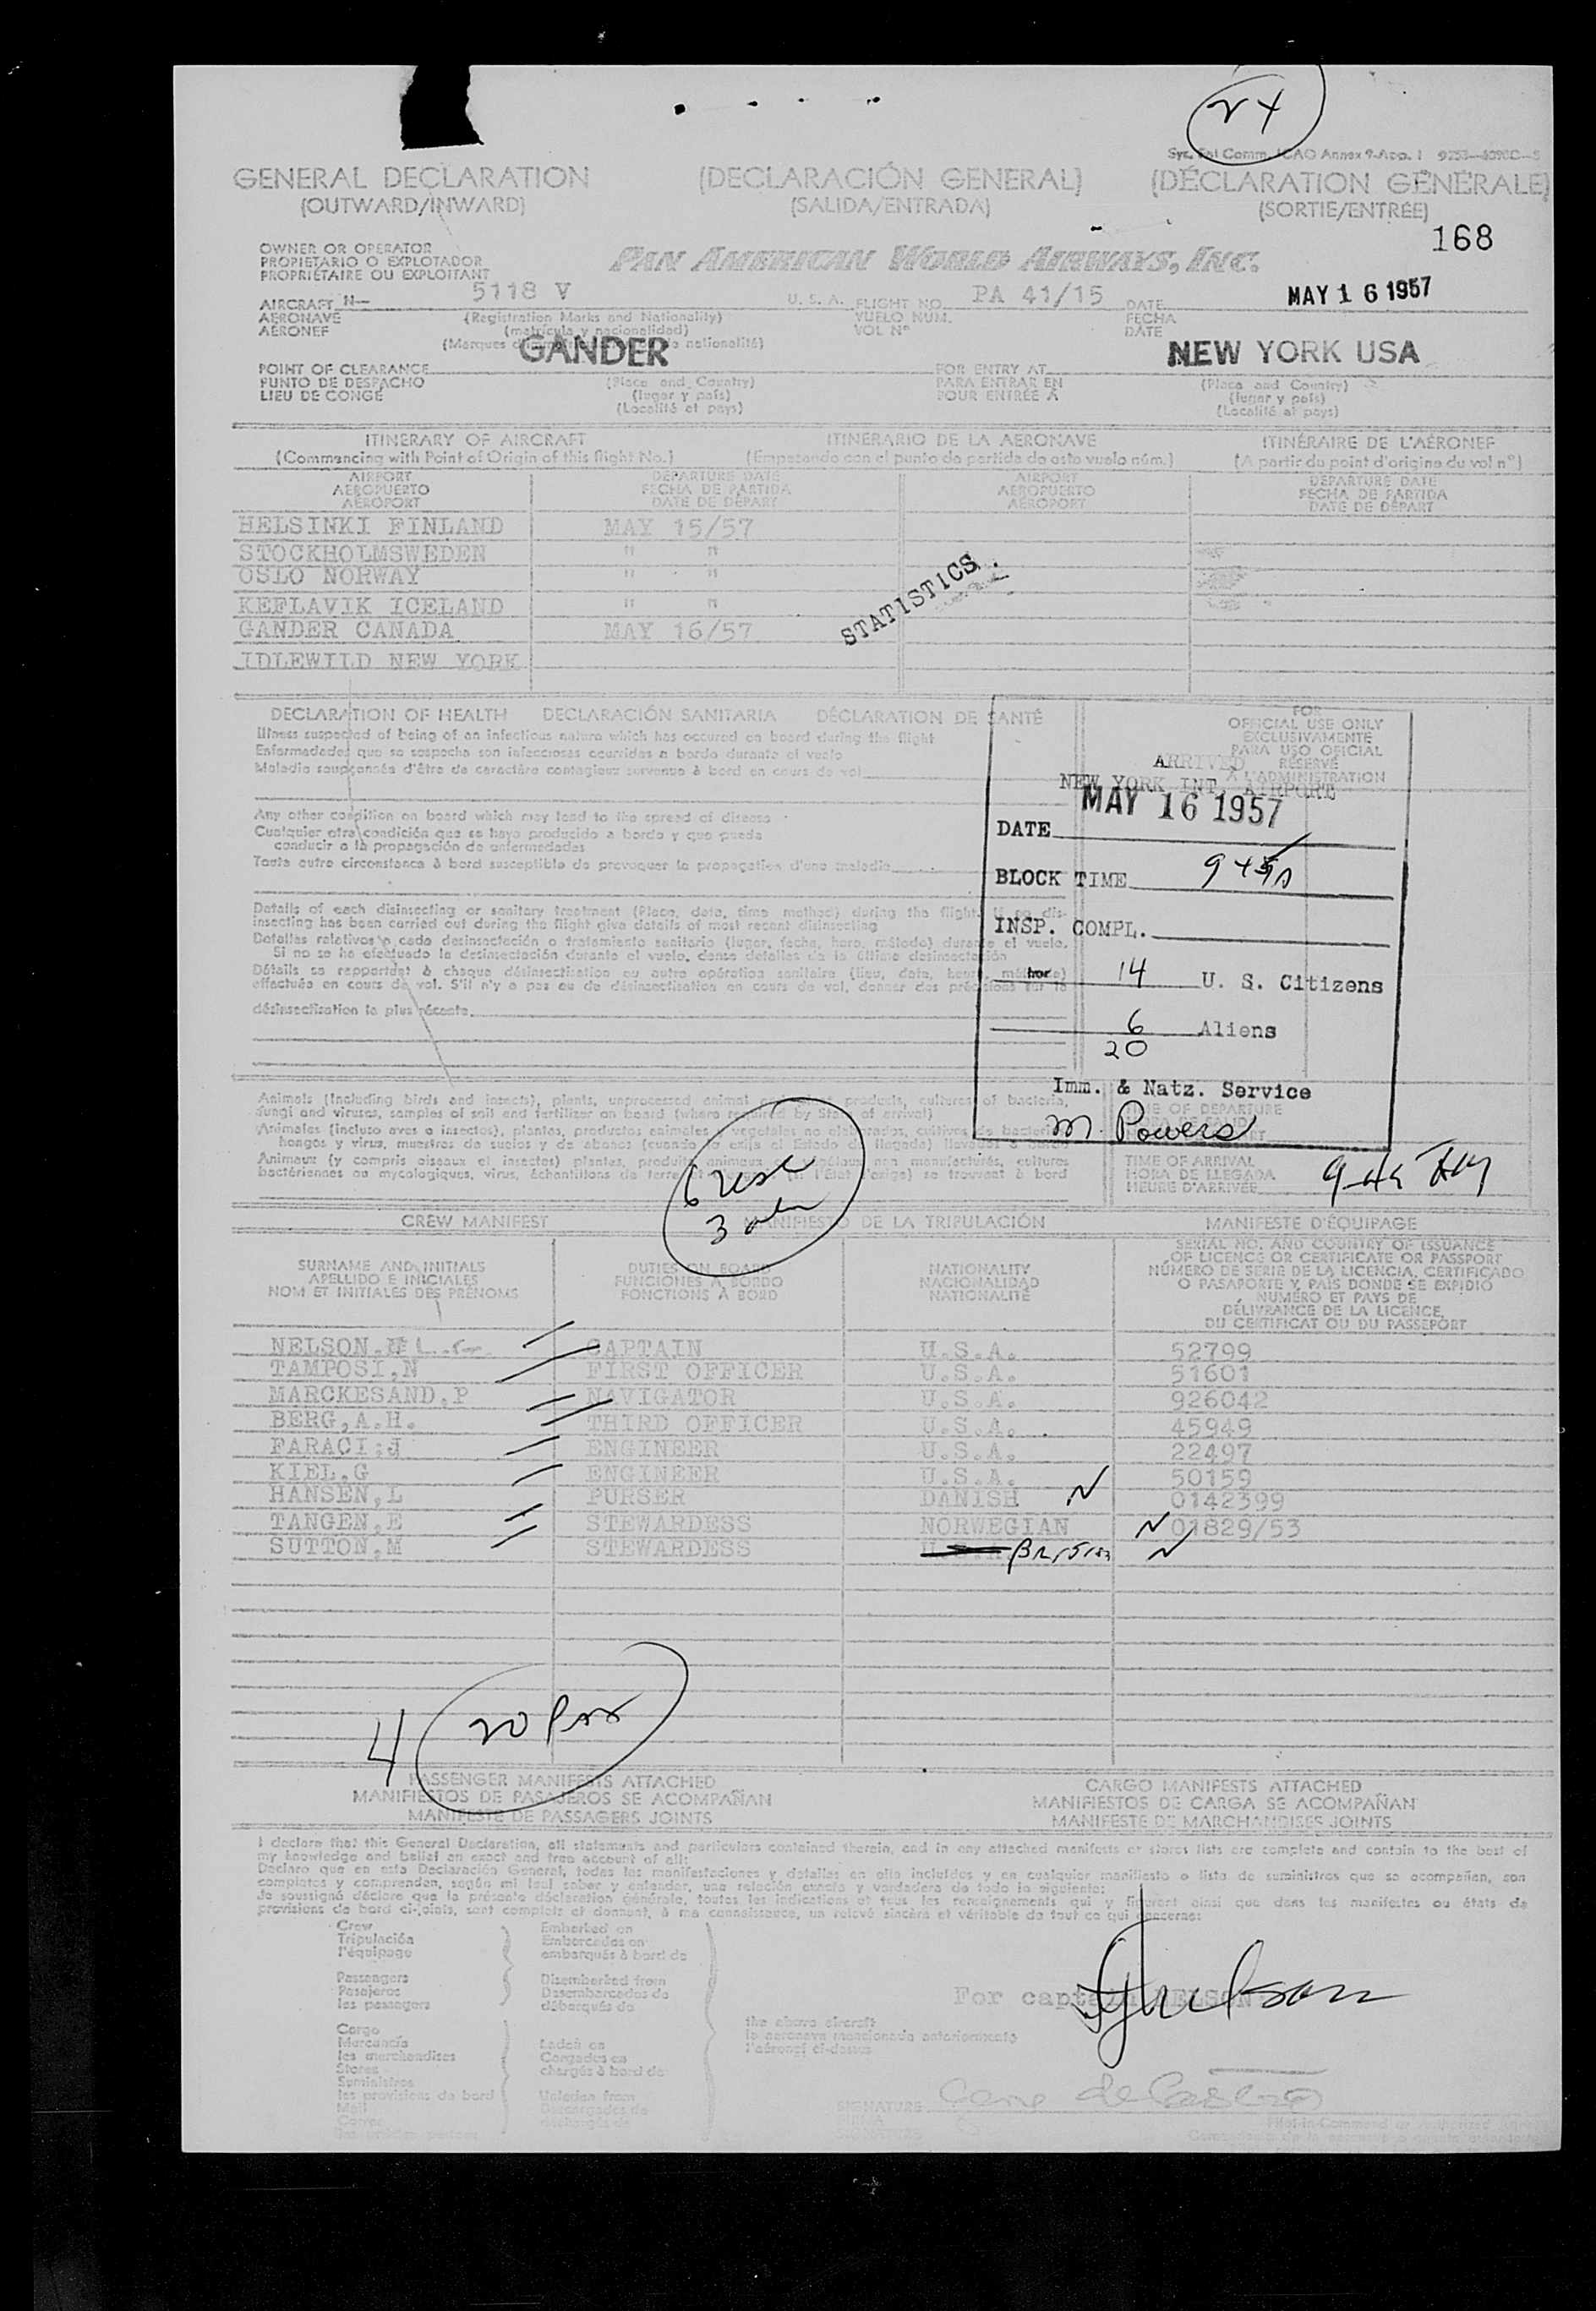 24
Syc. Tal Comm. ICAO Annex 9-App. 1
GENERAL DECLARATION (DECLARACIÓN GENERAL) (DÉCLARATION GÉNÉRALE)
(OUTWARD/INWARD) (SALIDA/ENTRADA) (SORTIE/ENTRÉE)
168
OWNER OR OPERATOR
PROPIETARIO O EXPLOTADOR
PROPRIÉTAIRE OU EXPLOITANT
PAN AMERICAN WORLD AIRWAYS, INC.
AIRCRAFT N— 5118 V U. S. A. FLIGHT NO. PA 41/15 DATE MAY 16 1957
AERONAVE (Registration Marks and Nationality) VUELO NUM. FECHA
AÉRONEF (matrícula y nacionalidad) VOL N° DATE
(Marques nationalité)
GANDER NEW YORK USA
POINT OF CLEARANCE FOR ENTRY AT
PUNTO DE DESPACHO (Place and Country) PARA ENTRAR EN (Place and Country)
LIEU DE CONGÉ (lugar y país) POUR ENTRÉE A (lugar y país)
(Localité et pays) (Localité et pays)
ITINERARY OF AIRCRAFT ITINERARIO DE LA AERONAVE ITINÉRAIRE DE L'AÉRONEF
(Commencing with Point of Origin of this flight No.) (Empezando con el punto de partida de este vuelo núm.) (A partir du point d'origine du vol n°)
AIRPORT DEPARTURE DATE AIRPORT DEPARTURE DATE
AEROPUERTO FECHA DE PARTIDA AEROPUERTO FECHA DE PARTIDA
AÉROPORT DATE DE DÉPART AÉROPORT DATE DE DÉPART
HELSINKI FINLAND MAY 15/57
STOCKHOLMSWEDEN " "
OSLO NORWAY " "
KEFLAVIK ICELAND " "
GANDER CANADA MAY 16/57
IDLEWILD NEW YORK
STATISTICS
DECLARATION OF HEALTH DECLARACIÓN SANITARIA DÉCLARATION DE SANTÉ
Illness suspected of being of an infectious nature which has occured on board during the flight
Enfermedades que se sospecha son infecciosas ocurridas a bordo durante el vuelo
Maladie soupçonnée d'être de caractère contagieux survenue à bord en cours de vol
Any other condition on board which may lead to the spread of disease
Cualquier otra condición que se haya producido a bordo y que pueda
conducir a la propagación de enfermedades
Toute autre circonstance à bord susceptible de provoquer la propagation d'une maladie
Details of each disinsecting or sanitary treatment (Place, date, time method) during the flight. If no dis-
insecting has been carried out during the flight give details of most recent disinsecting
Detalles relativos a cada desinsectación o tratamiento sanitario (lugar, fecha, hora, método) durante el vuelo.
Si no se ha efectuado la desinsectación durante el vuelo, dense detalles de la última desinsectación
Détails se rapportant à chaque désinsectisation ou autre opération sanitaire (lieu, date, heure, méthode)
effectuée en cours de vol. S'il n'y a pas eu de désinsectisation en cours de vol, donner des précisions sur la
désinsectisation la plus récente
FOR
OFFICIAL USE ONLY
EXCLUSIVAMENTE
PARA USO OFICIAL
RÉSERVÉ
À L'ADMINISTRATION
ARRIVED
NEW YORK INT. AIRPORT
DATE MAY 16 1957
BLOCK TIME
INSP. COMPL.
14 U. S. Citizens
6 Aliens
20
Imm. & Natz. Service
M. Powers
Animals (Including birds and insects), plants, unprocessed animal products, cultures of bacteria,
fungi and viruses, samples of soil and fertilizer on board (where required by State of arrival)
Animales (incluso aves e insectos), plantas, productos animales vegetales no elaborados, cultivos de bacterias
hongos y virus, muestras de suelos y de abonos (cuando lo exija el Estado de llegada)
Animaux (y compris oiseaux et insectes) plantes, produits animaux non manufacturés, cultures
bactériennes ou mycologiques, virus, échantillons de terre (si l'État l'exige) se trouvant à bord
TIME OF DEPARTURE
TIME OF ARRIVAL
HORA DE LLEGADA
HEURE D'ARRIVÉE
6 usc
3 aln
CREW MANIFEST MANIFIESTO DE LA TRIPULACIÓN MANIFESTE D'ÉQUIPAGE
SURNAME AND INITIALS DUTIES ON BOARD NATIONALITY SERIAL NO. AND COUNTRY OF ISSUANCE
APELLIDO E INICIALES FUNCIONES A BORDO NACIONALIDAD OF LICENCE OR CERTIFICATE OR PASSPORT
NOM ET INITIALES DES PRÉNOMS FONCTIONS À BORD NATIONALITÉ NÚMERO DE SERIE DE LA LICENCIA, CERTIFICADO
O PASAPORTE Y PAÍS DONDE SE EXPIDIÓ
NUMÉRO ET PAYS DE
DÉLIVRANCE DE LA LICENCE,
DU CERTIFICAT OU DU PASSEPORT
NELSON, CAPTAIN U.S.A. 52799
TAMPOSI,N FIRST OFFICER U.S.A. 51601
MARCKESAND,P NAVIGATOR U.S.A. 926042
BERG,A.H. THIRD OFFICER U.S.A. 45949
FARACI,J ENGINEER U.S.A. 22497
KIEL,G ENGINEER U.S.A. 50159
HANSEN,L PURSER DANISH 0142399
TANGEN,E STEWARDESS NORWEGIAN 01829/53
SUTTON,M STEWARDESS British
4 20 Pax
PASSENGER MANIFESTS ATTACHED CARGO MANIFESTS ATTACHED
MANIFIESTOS DE PASAJEROS SE ACOMPAÑAN MANIFIESTOS DE CARGA SE ACOMPAÑAN
MANIFESTE DE PASSAGERS JOINTS MANIFESTE DE MARCHANDISES JOINTS
I declare that this General Declaration, all statements and particulars contained therein, and in any attached manifests or stores lists are complete and contain to the best of
my knowledge and belief an exact and true account of all:
Declaro que en esta Declaración General, todas las manifestaciones y detalles en ella incluídos y en cualquier manifiesto o lista de suministros que se acompañen, son
completos y comprenden, según mi leal saber y entender, una relación exacta y verdadera de todo lo siguiente:
Je soussigné déclare que la présente déclaration générale, toutes les indications et tous les renseignements qui y figurent ainsi que dans les manifestes ou états de
provisions de bord ci-joints, sont complets et donnent, à ma connaissance, un relevé sincère et véritable de tout ce qui concerne:
Crew Embarked on
Tripulación Embarcados en
l'équipage embarqués à bord de
Passengers Disembarked from
Pasajeros Desembarcados de
les passagers débarqués de
For captain NELSON
Cargo the above aircraft
Mercancía Laden on la aeronave mencionada anteriormente
les marchandises Cargados en l'aéronef ci-dessus
Stores chargés à bord de
Suministros
les provisions de bord Unladen from
Mail Descargados de
Correo déchargés de
SIGNATURE
Pilot-in-Command or Authorized